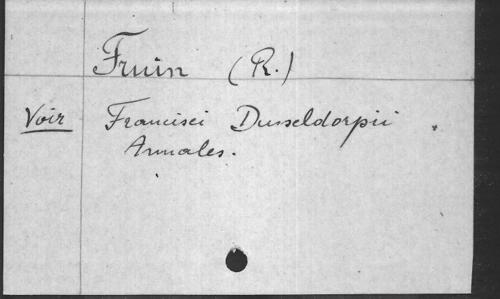 Fruin (R.)
Voir Francisci Dusseldorpii
Annales.